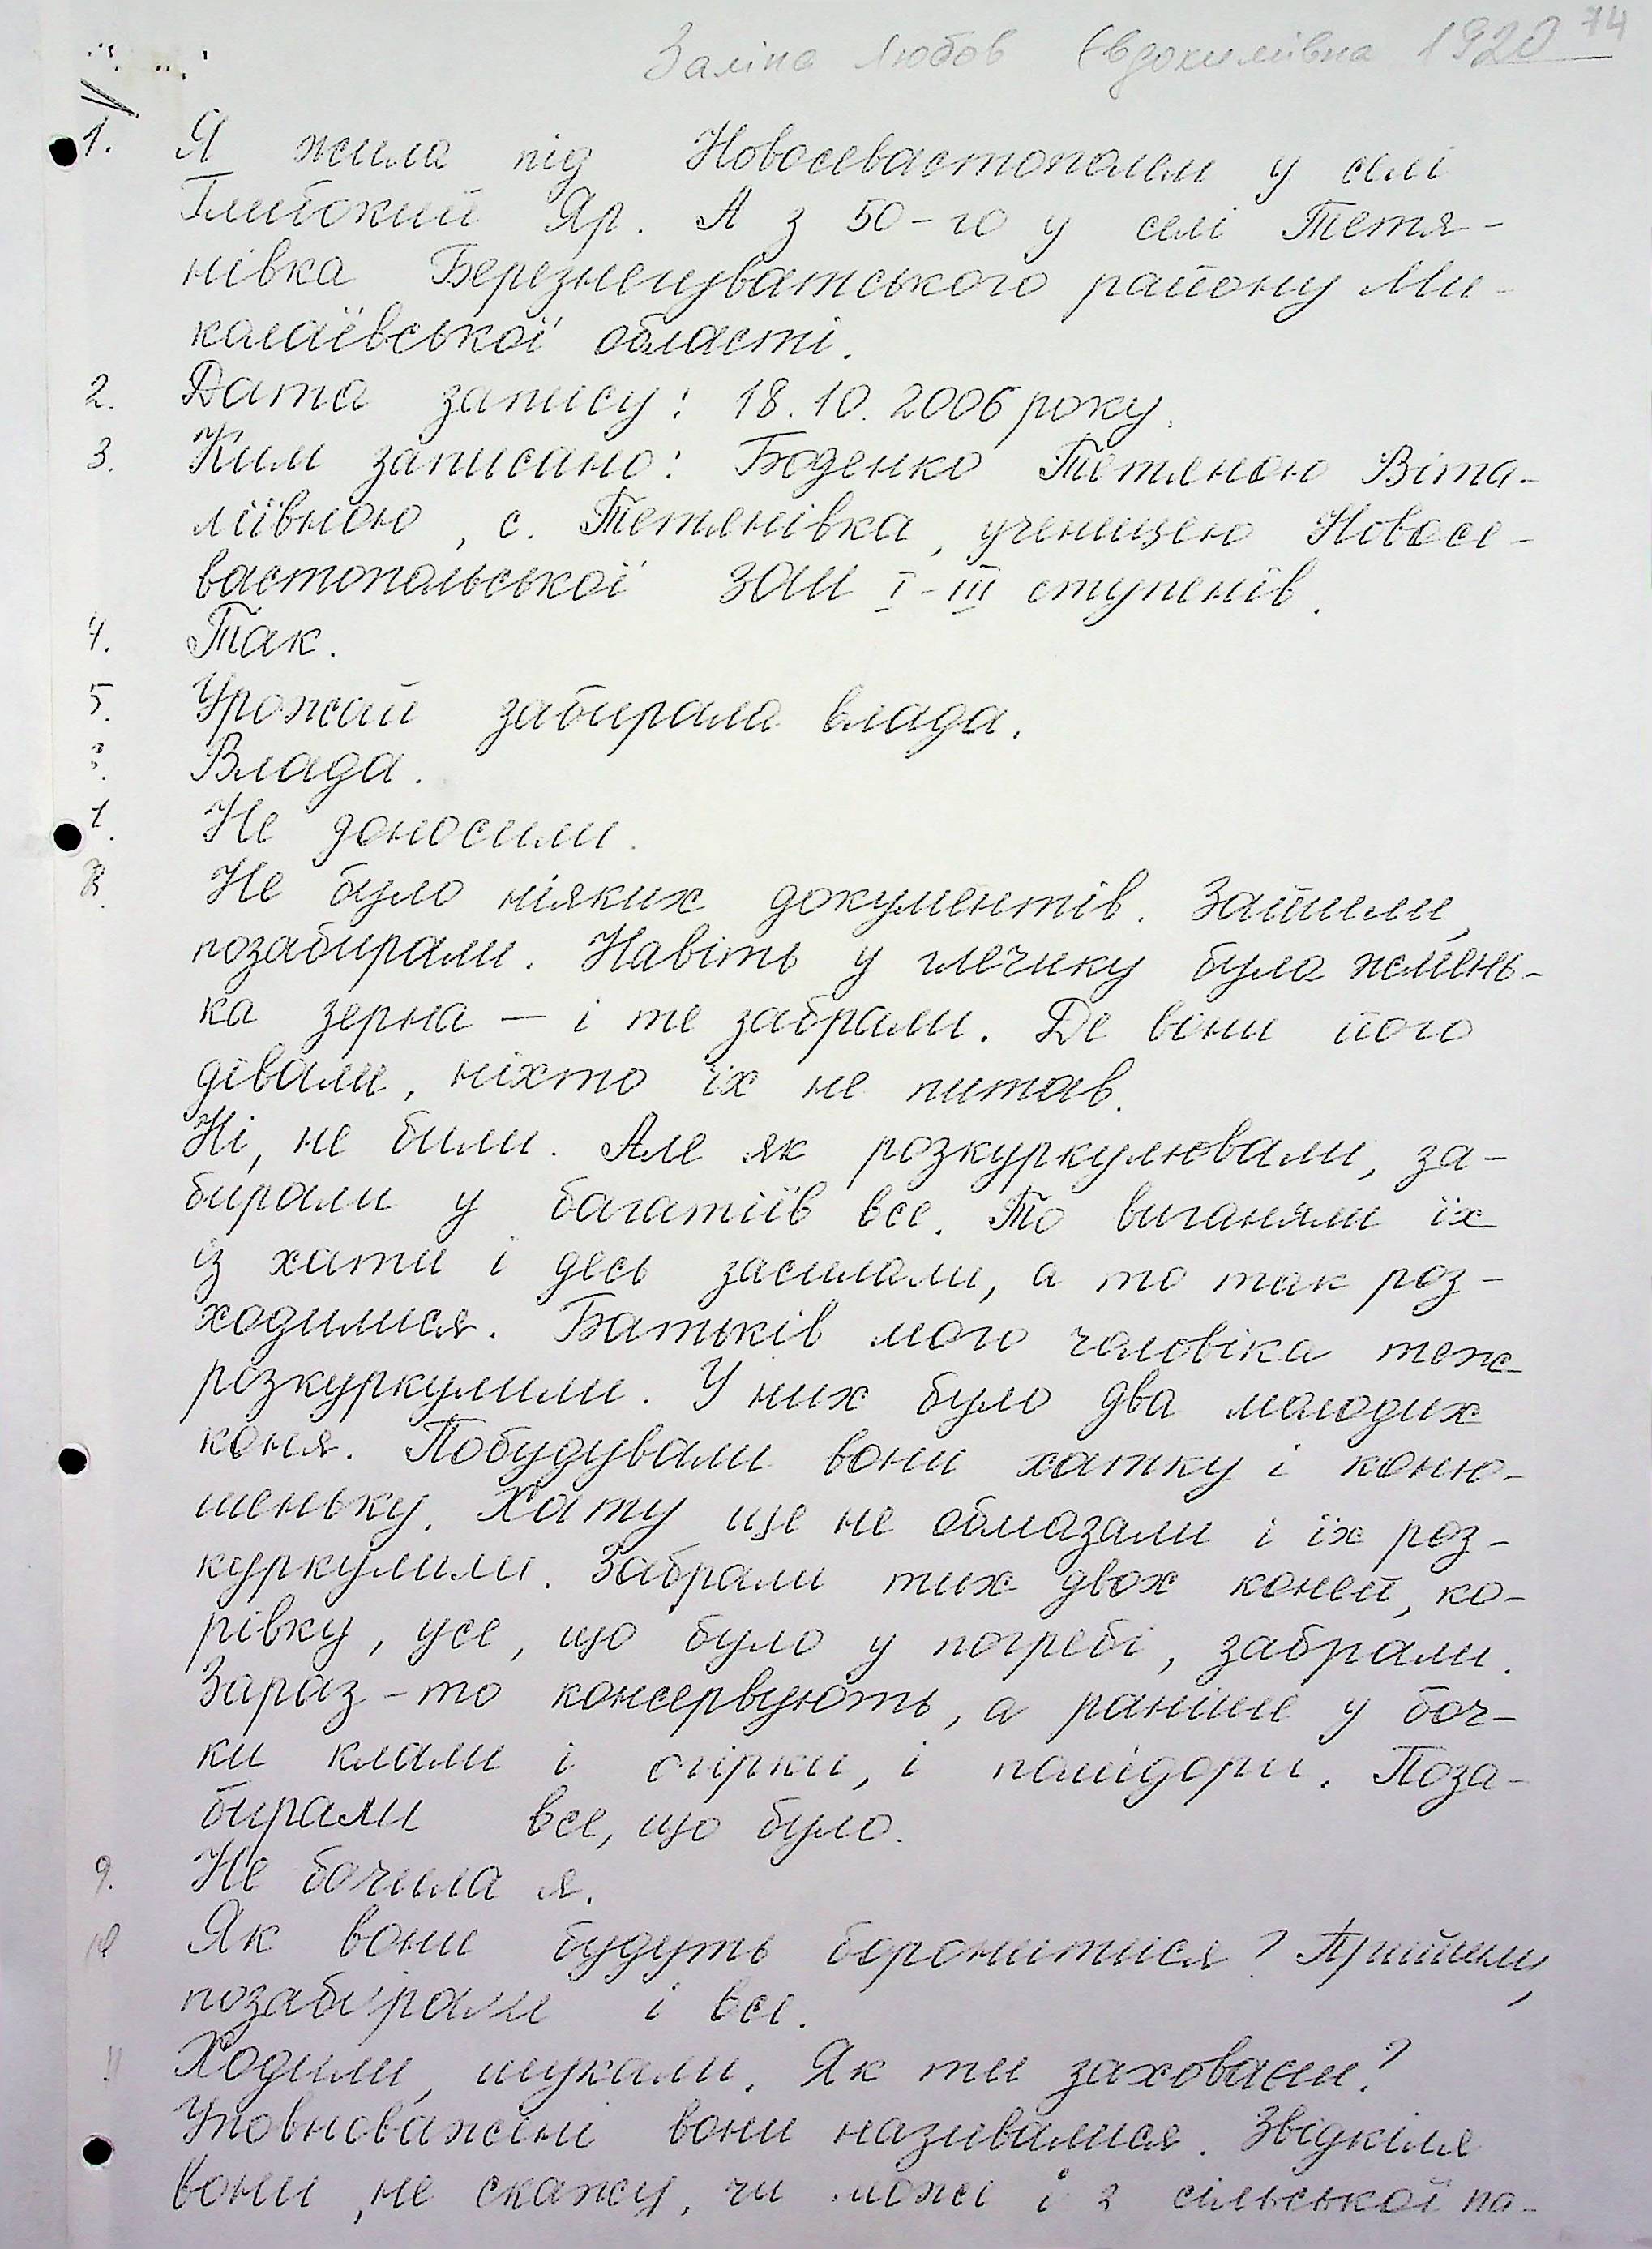 Заліпа Любов Євдокимівна 1920 74
1. Я жила під Новосевастополем у селі
Глибокий Яр. А з 50-го у селі Тетя-
нівка Березнегуватського району Ми-
колаївської області.
2. Дата запису: 18.10.2006 року.
3. Ким записано: Боденко Тетяною Віта-
ліївною, с. Тетянівка, ученицею Новосе-
вастопольської ЗОШ І-ІІІ ступенів.
4. Так.
5. Урожай забирала влада.
Влада.
Не доносили.
8. Не було ніяких документів. Зайшли,
позабирали. Навіть у глечику була жмень-
ка зерна — і те забрали. Де вони його
дівали, ніхто їх не питав.
Ні, не били. Але як розкуркулювали, за-
бирали у багатіїв все. То виганяли їх
із хати і десь засилали, а то так роз-
ходилися. Батьків мого чоловіка теж
розкуркулили. У них було два молодих
коня. Побудували вони хатку і коню-
шеньку. Хату ще не обмазали і їх роз-
куркулили. Забрали тих двох коней, ко-
рівку, усе, що було у погребі, забрали.
Зараз-то консервують, а раніше у боч-
ки клали і огірки, і помідори. Поза-
бирали все, що було.
9. Не бачила я.
10 Як вони будуть боронитися? Прийшли,
позабирали і все.
11 Ходили, шукали. Як ти заховаєш?
Уповноважені вони називалися. Звідкіля
вони, не скажу, чи може і з сільської ра-